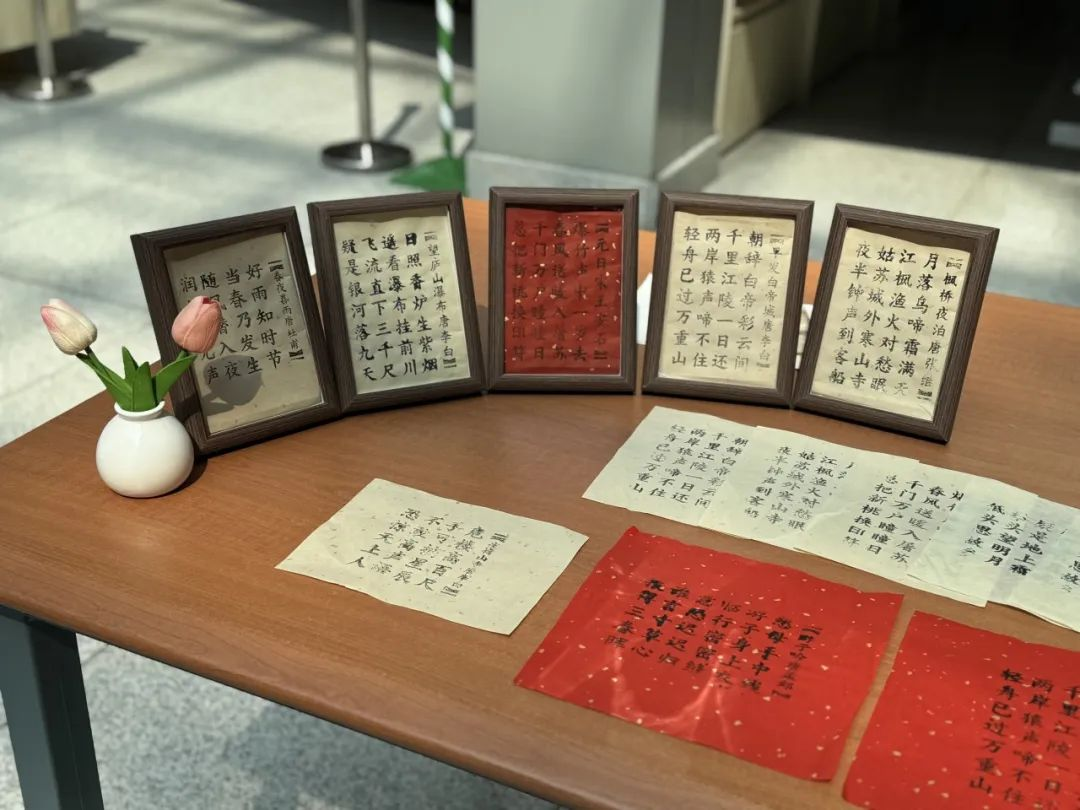 【春夜喜雨唐杜甫】
好雨知时节
当春乃发生
随入夜
润声
【望庐山瀑布唐李白】
日照香炉生紫烟
遥看瀑布挂前川
飞流直下三千尺
疑是银河落九天
【元日宋王安石】
爆竹声中一岁去
春风送暖入屠苏
千门万户曈曈日
总把新桃换旧符
【早发白帝城唐李白】
朝辞白帝彩云间
千里江陵一日还
两岸猿声啼不住
轻舟已过万重山
【枫桥夜泊唐张继】
月落乌啼霜满天
江枫渔火对愁眠
姑苏城外寒山寺
夜半钟声到客船
朝辞白帝彩云间
千里江陵一日还
两岸猿声啼不住
轻舟已过万重山
江枫渔火对愁眠
姑苏城外寒山寺
夜半钟声到客船
春风送暖入屠苏
千门万户曈曈日
总把新桃换旧符
疑是地上霜
头望明月
低头思故乡
危楼高百尺
手可摘星辰
不敢高声语
恐惊天上人
【游子吟唐孟郊】
慈母手中线
游子身上衣
临行密密缝
意恐迟迟归
谁言寸草心
报得三春晖
千里江陵
两岸猿声啼不住
轻舟已过万重山